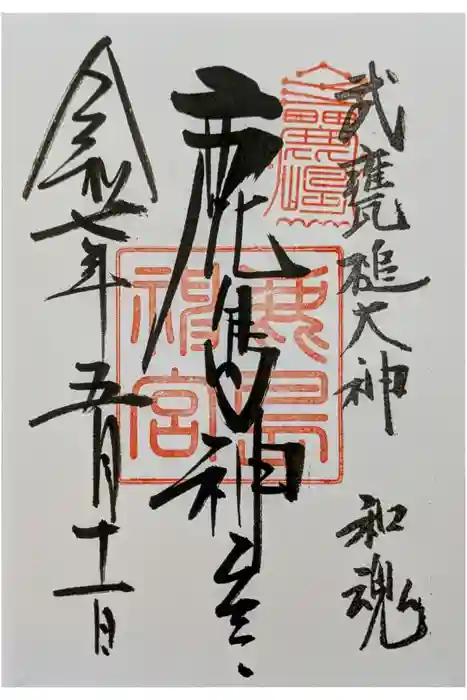 武甕槌大神 和魂
鹿島神宮
鹿島神宮
令和七年五月十一日